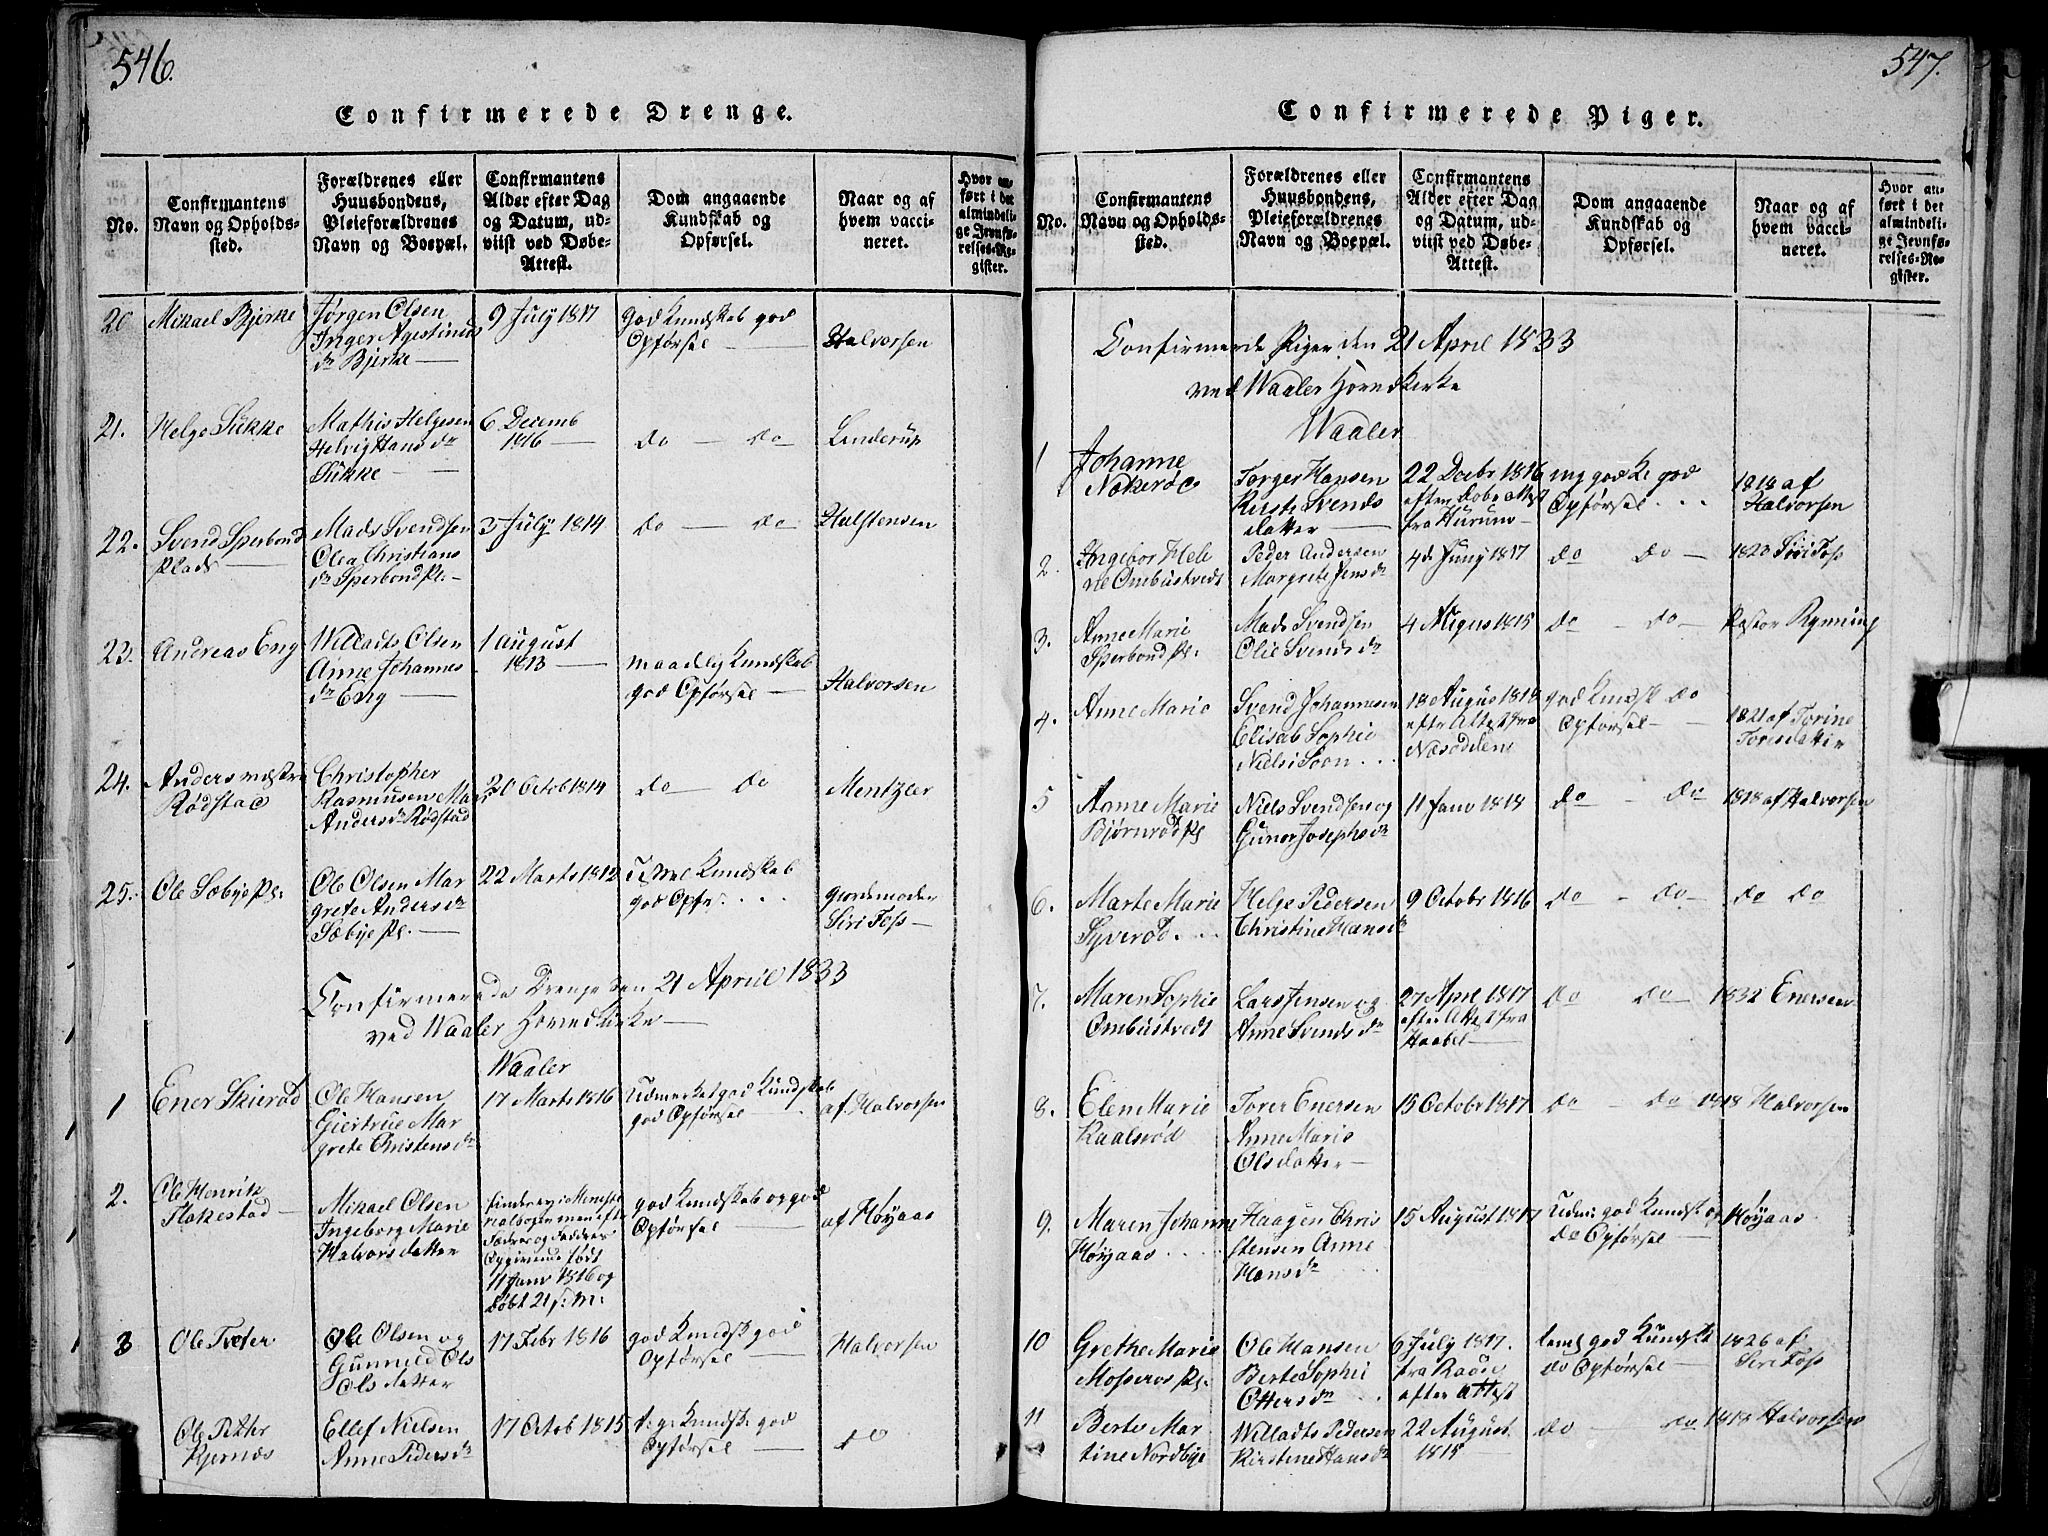 546.
Confirmerede Drenge.
No.
Confirmantens
Navn og Opholds-
sted.
Forældrenes eller
Huusbondens,
Pleieforældrenes
Navn og Boepæl.
Confirmantens
Alder efter Dag
og Datum, ud-
viist ved Døbe-
Attest.
Dom angaaende
Kundskab og
Opførsel.
Naar og af
hvem vacci-
neret.
Hvor an-
ført i det
almindeli-
ge Jevnfø-
relses-Re-
gister.
20 Mikael Bjerke
Jørgen Olsen
Inger Agestinus
dr Bjerke
9 July 1817
god Kundskab god
Opførsel
Halvorsen
21. Helge Sukke
Mathis Helgesen
Helvig Hans dr
Sukke
6 Decemb
1816
do do
Linderup
22. Svend Sperbond
Plads
Mads Svendsen
Olea Christians
dr Sperbond Pl.
3 July 1814
do do
Halstensen
23. Andreas Eng
Willadts Olsen
Anne Johannes
dr Eng
1 August
1813
maadelig Kundskab
god Opførsel
Halvorsen
24. Anders
Rødstad
Christopher
Rasmusen Mar
Anders dr Rødstad
20 Octob 1814
do do
Mentzler
25. Ole Sæbye Pl.
Ole Olsen Mar
grete Anders dr
Sæbye Pl.
22 Marts 1812
Kundskab
god Opfr.
Giordemoder
Siri Foss
Confirmerede Drenge den 21 April 1833
ved Waaler Hovedkirke
Waaler
1 Ener Skierød
Ole Hansen
Giertrue Mar
grete Christens dr
17 Marts 1816
Udmerket god Kundskab
god Opførsel
af Halvorsen
2. Ole Henrik
Flakestad
Mikael Olsen
Ingeborg Marie
Halvors datter
Fædres og Fadderes
Opgivende født
11 Janv 1816 og
døbt 21 s. M.
god Kundskab og god
Opførsel
af Høyaas
3 Ole Tveter
Ole Olsen og
Gunnild Ols
Ols datter
17 Febr 1816
god Kundsk god
Opførsel
Halvorsen
Ole Petter
Kjernæs
Ellef Nielsen
Anne Peders dr
17 Octob 1815
Kundsk god
Opførsel
do
547.
Confirmerede Piger.
No.
Confirmantens
Navn og Opholds-
sted.
Forældrenes eller
Huusbondens,
Pleieforældrenes
Navn og Boepæl.
Confirmantens
Alder efter Dag
og Datum, ud-
viist ved Døbe-
Attest.
Dom angaaende
Kundskab og
Opførsel.
Naar og af
hvem vacci-
neret.
Hvor an-
ført i det
almindeli-
ge Jevnfø-
relses-Re-
gister.
Confirmerde Piger den 21 April 1833
ved Waaler Hovedkirke
Waaler
1 Johanne
Nøkerød
Torger Hansen
Kirste Svends
datter
22 Decbr 1816
efter Døbe Attest
fra Hurum
god
Opførsel
1818 af
Halvorsen
2. Ingebor Hele
ne Ombustvedt
Peder Andersen
Margrete Jens dr
4de Juny 1817
do do
1823 Siri Foss
3. Anne Marie
Sperbond Pl.
Mads Svendsen
Olie Svends dr
4 Augus 1815
do do
Pastor Rynning
4. Anne Marie
Svend Johannesen
Elisab Sophie
Niels Soon
18 Augus 1818
efter Attest fra
Næsoddene
god Kundsk do
Opførsel
1821 af Torine
Toresdatter
5 Anne Marie
Bjørnrød Pl
Niels Svendsen og
Guner Josephs dr
11 Janv 1818
do do
1818 af Halvorsen
6. Marte Marie
Syverød
Helge Pedersen
Christine Hans dr
9 Octobr 1816
do do
do do
7. Maren Sophie
Ombustvedt
Lars Jensen og
Anne Svends dr
27 April 1817
efter Attest fra
Haabel
do do
1832 Enersen
8. Elen Marie
Kaalsrød
Torer Enersen
Anne Marie
Olsdatter
15 Octobr 1817
do do
1818 Halvorsen
9. Maren Johanne
Høyaas
Haagen Chris
stensen Anne
Hans dr
15 August 1817
Udm: god Kundsk og
do Opførsel
Høyaas
10 Grethe Marie
Mosseros Pl.
Ole Hansen
Berte Sophie
Otters dr
6 July 1817.
fra Raade
efter Attest
god Kundsk
do Opførsel
1826 af
Siri Foss
11 Berte Mar
tine Nordbye
Willadts Pedersen
Kirstene Hans dr
22 August
1815
do do
1818 Halvorsen